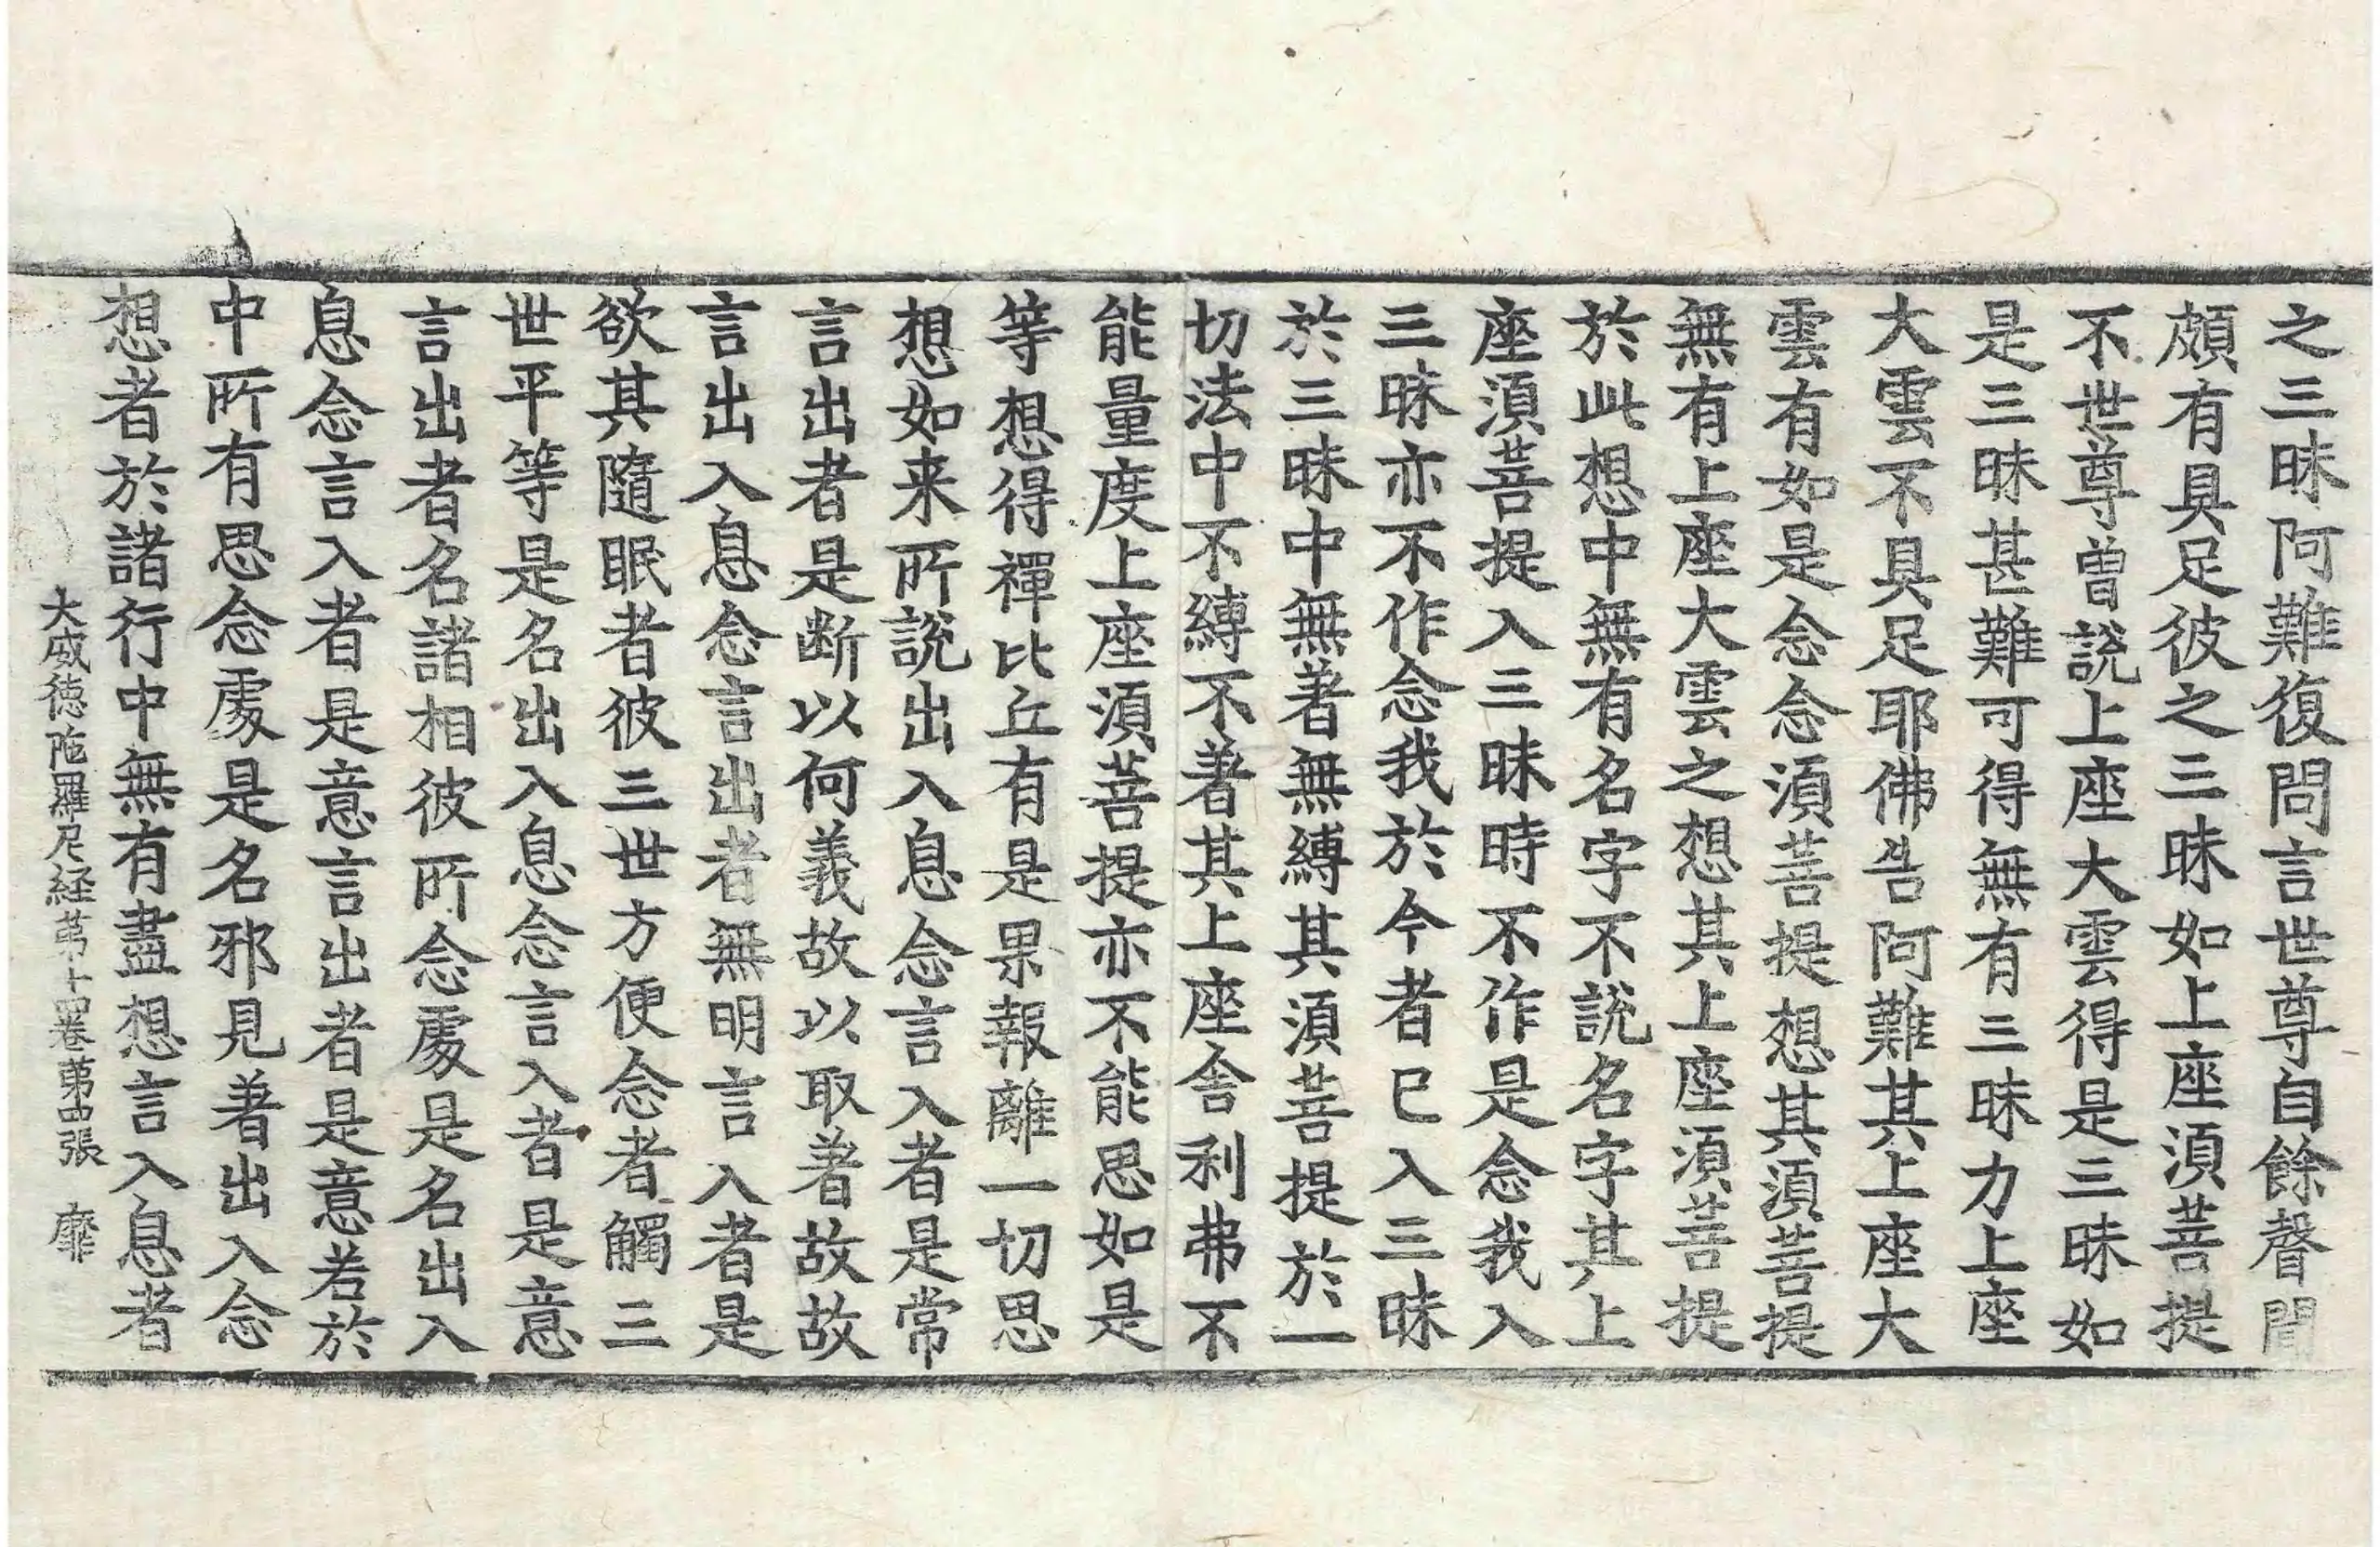 之三昧阿難復問言世尊自餘聲聞
頗有具足彼之三昧如上座須菩提
不世尊曾說上座大雲得是三昧如
是三昧甚難可得無有三昧力上座
大雲不具足耶佛告阿難其上座大
雲有如是念念須菩提想其須菩提
無有上座大雲之想其上座須菩提
於此想中無有名字不說名字其上
座須菩提入三昧時不作是念我入
三昧亦不作念我於今者已入三昧
於三昧中無著無縛其須菩提於一
切法中不縛不著其上座舍利弗不
能量度上座須菩提亦不能思如是
等想得禪比丘有是果報離一切思
想如来所說出入息念言入者是常
言出者是断以何義故以取著故故
言出入息念言出者無明言入者是
欲其隨眠者彼三世方便念者觸三
世平等是名出入息念言入者是意
言出者名諸相彼所念處是名出入
息念言入者是意言出者是意若於
中所有思念處是名邪見著出入念
想者於諸行中無有盡想言入息者
大威徳陁羅尼経苐十四卷苐四張 靡